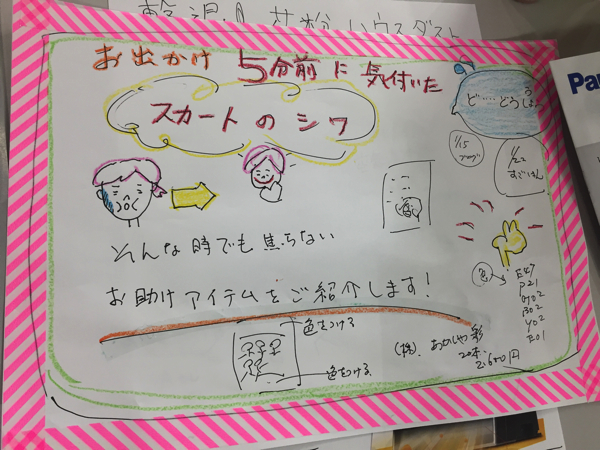 花粉 ハウスダスト
お出かけ 5分前に気付いた
スカートのシワ
ど……どうしよう
1/15
1/22
すごいはん
そんな時でも焦らない
お助けアイテムをご紹介します!
色をつける
色をつける
(株)、あかしや彩
20本
2,600円
色
E47
P21
B02
Y02
E01
Pan